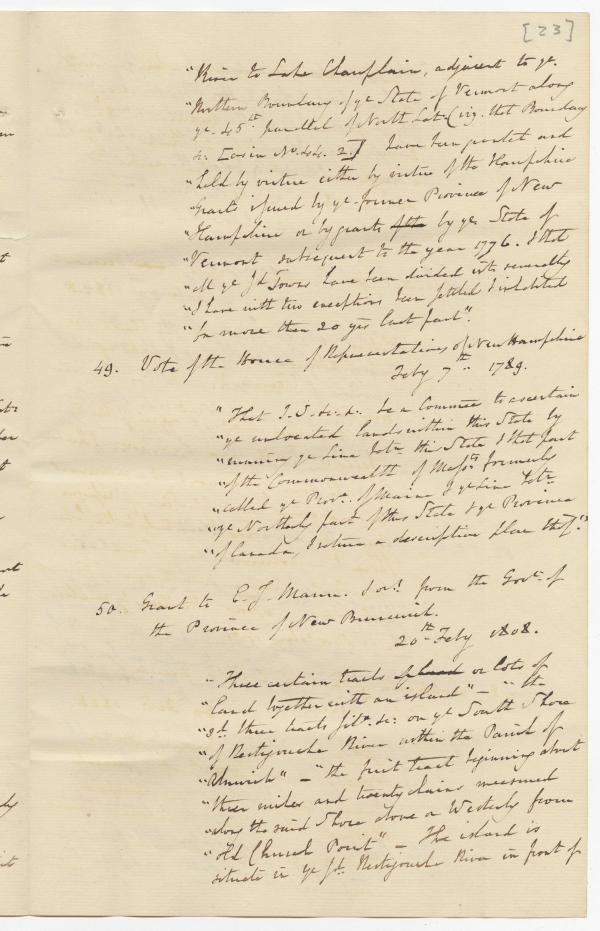 [23]
"River to Lake Champlain, adjacent to ye.
"Northern Boundary of ye State of Vermont along
"ye. 45th parallel of North Lat. (vig. that Boundary
&c. No. 44. 2.)] have been granted and
"held by virtue either by virtue of the Hampshire
"Grants issued by ye former Province of New
"Hampshire or by grants by ye State of
"Vermont subsequent to the year 1776. & that
"all ye sd. Towns have been divided into severalty
"& have with two exceptions been settled & inhabited
"for more than 20 yrs last past".
49. Vote of the House of Representatives of New Hampshire
Feby 7th 1789.
"That J. S. &c. &. be a Commee to ascertain
"ye unlocated lands within this State by
"running ye line betn. this State & that part
"of the Commonwealth of Massts formerly
"called ye Prove. of Maine & ye line betn.
"ye Northerly part of this State & ye Province
"of Canada, & return a description plan thof."
50. Grant to E. J. Mann. & ors. from the Govt. of
the Province of New Brunswick.
20th Feby 1808.
"Three certain tracts of land or lots of
"land together with an island" – "the
"sd. three tracts sitd. &c: on ye South Shore
"of Restigouche River within the Parish of
"Alnwick" – "the first tract beginning about
"three miles and twenty chains measured
"along the said Shore above or Westerly from
"Old Church Point" – The island is
situate in ye sd. Restigouche River in front of